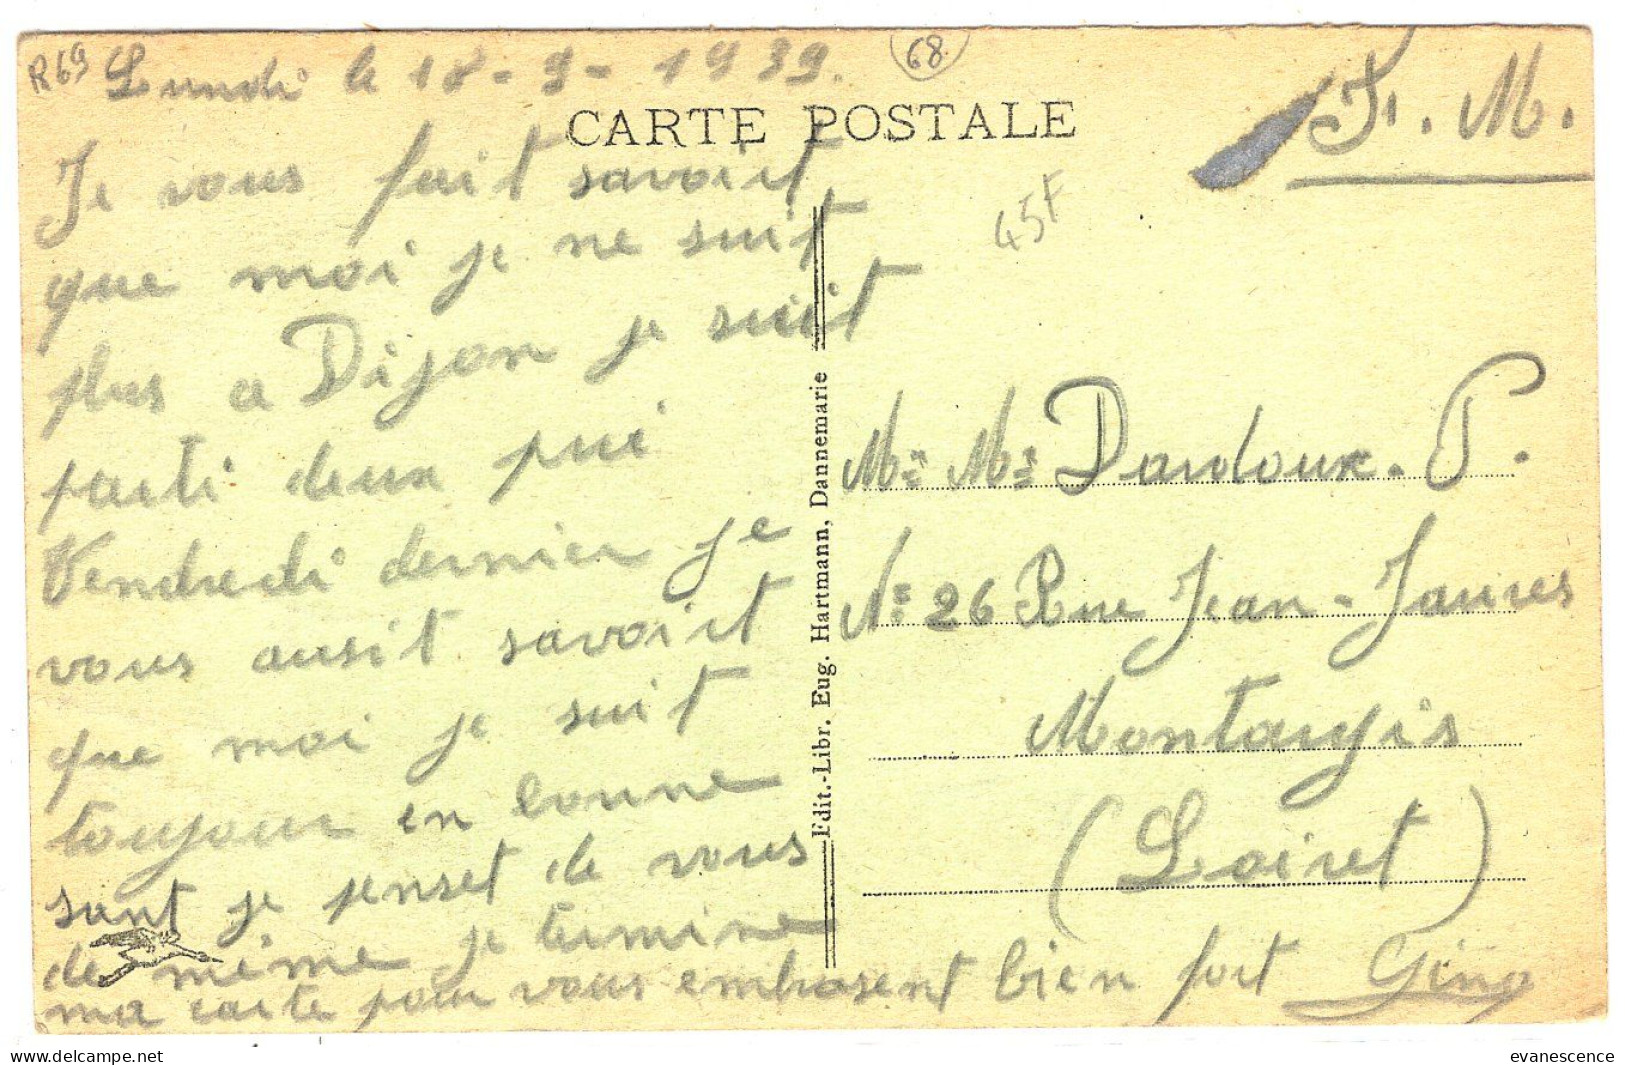 R69 Lundi le 18-9-1939.
68
F. M.
CARTE POSTALE
45F
Je vous fait savoirt
que moi je ne suit
plus a Dijon je suit
parti deux pui
Vendredi dernier je
vous ausit savoirt
que moi je suit
toujour en bonne
sant je penset de vous
de même je termine
ma carte pour vous embrasent bien fort Gino
Edit.-Libr. Eug. Hartmann, Dannemarie
Mr Me Dardoux. P.
No 26 Rue Jean-Jaures
Montargis
(Loiret)
evanescence